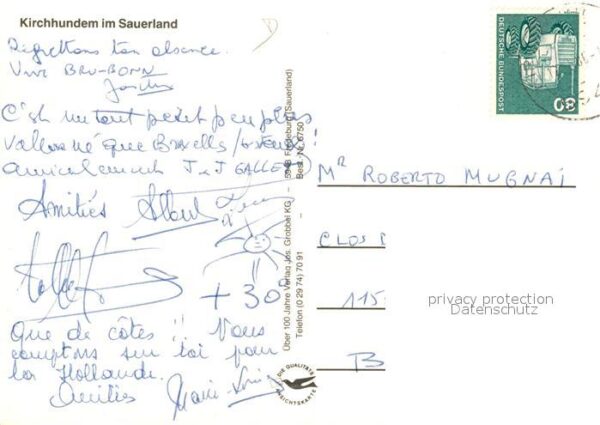 Kirchhundem im Sauerland
Regrettons ton absence.
Vive BRU-BONN
C'est un tout petit peu plus
vallonné que Bruxelles
amicalement J & J GALLE
Amitiés Albert
+ 30°
Que de côtes !! Nous
comptons sur toi pour
la Hollande.
Amitiés Marie-Louise
Über 100 Jahre Verlag Jos. Grobbel KG
Telefon (0 29 74) 70 91
5948 Fredeburg (Sauerland)
Best.-Nr. 6750
DIE QUALITÄTS
ANSICHTSKARTE
DEUTSCHE BUNDESPOST
80
Mr ROBERTO MUGNAI
CLOS
115
B
privacy protection
Datenschutz